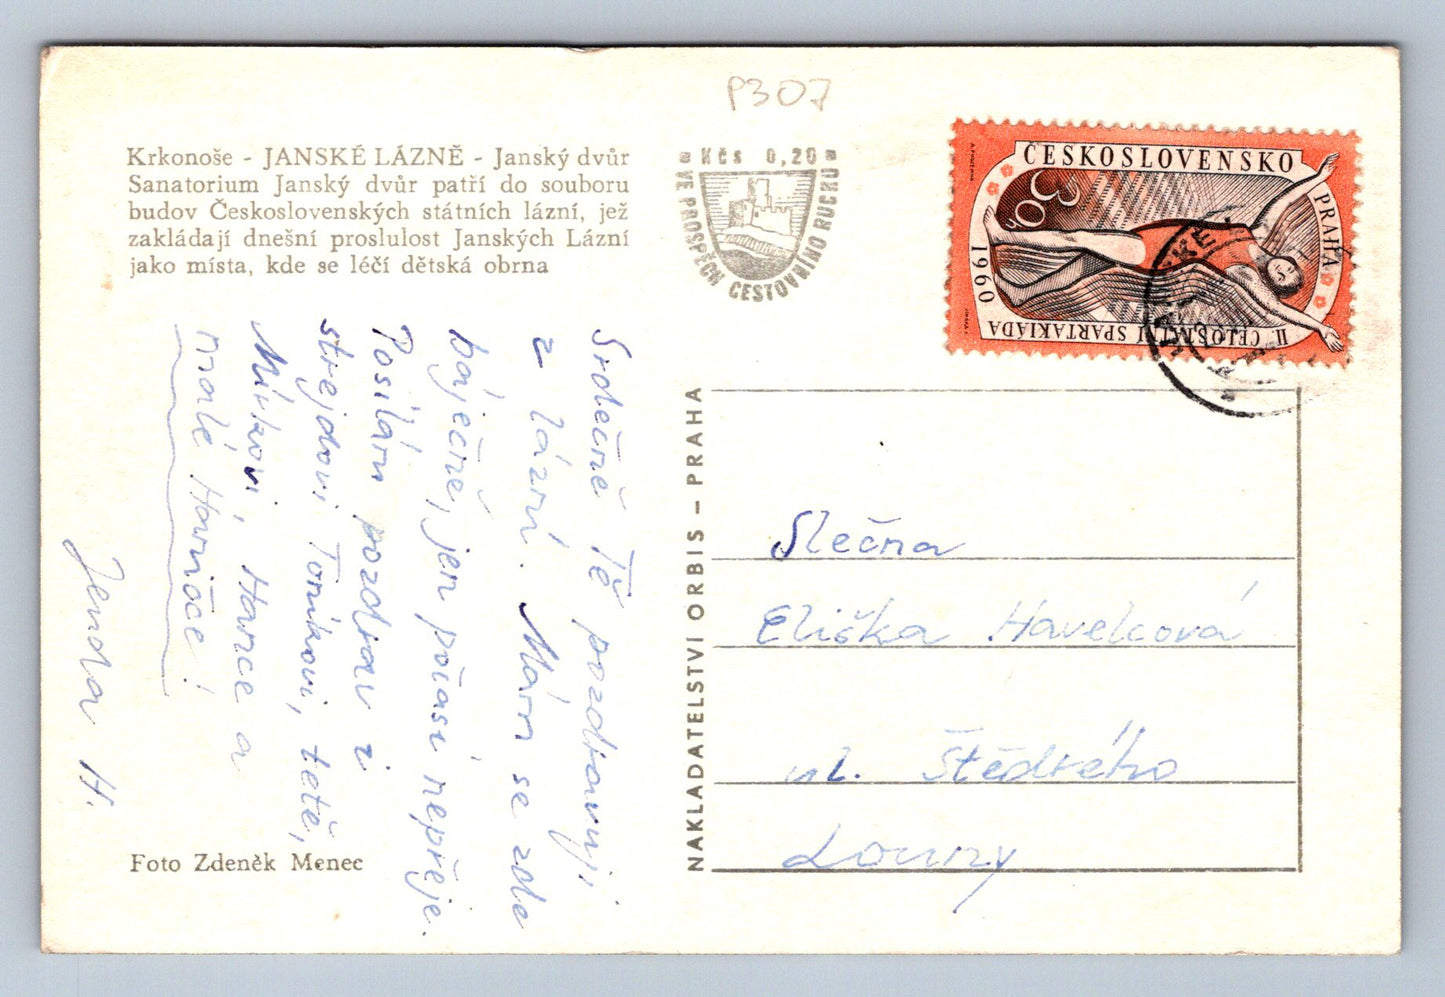 P307
Krkonoše - JANSKÉ LÁZNĚ - Janský dvůr
Sanatorium Janský dvůr patří do souboru
budov Československých státních lázní, jež
zakládají dnešní proslulost Janských Lázní
jako místa, kde se léčí dětská obrna
Kčs 0,20
VE PROSPĚCH CESTOVNÍHO RUCHU
ČESKOSLOVENSKO
PRAHA
II. CELOSTÁTNÍ SPARTAKIÁDA
1960
30h
Srdečně Tě pozdravuji
z lázní. Mám se zde
báječně, jen počasí nepřeje.
Posílám pozdrav i
strejdovi Toníkovi, tetě,
Mírkovi, Hance a
malé Haničce!
Jenda H.
NAKLADATELSTVÍ ORBIS – PRAHA
Slečna
Eliška Havelcová
ul. Štědrého
Louny
Foto Zdeněk Menec